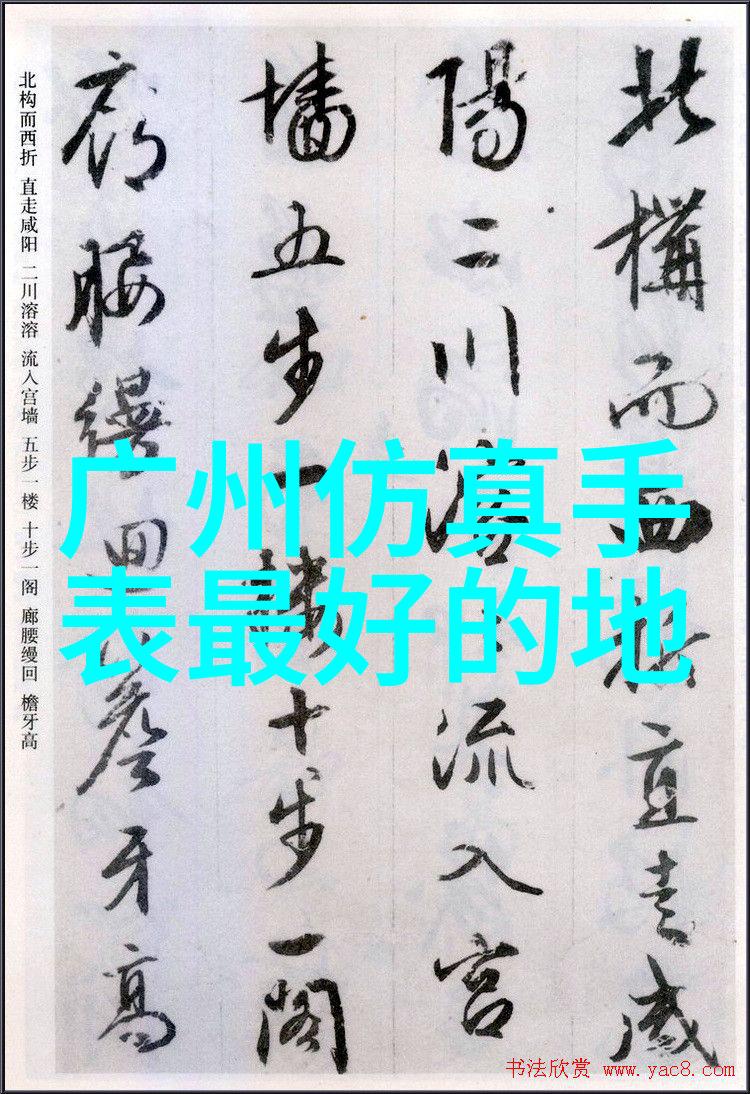 北構而西折直走咸
陽二川溶々流入宫
墻五步一樓十步一閣
廊腰縵回簷牙高
北构而西折 直走咸阳 二川溶溶 流入宫墙 五步一楼 十步一阁 廊腰缦回 檐牙高
广州仿真手
表最好的地
书法欣赏 www.yac8.com